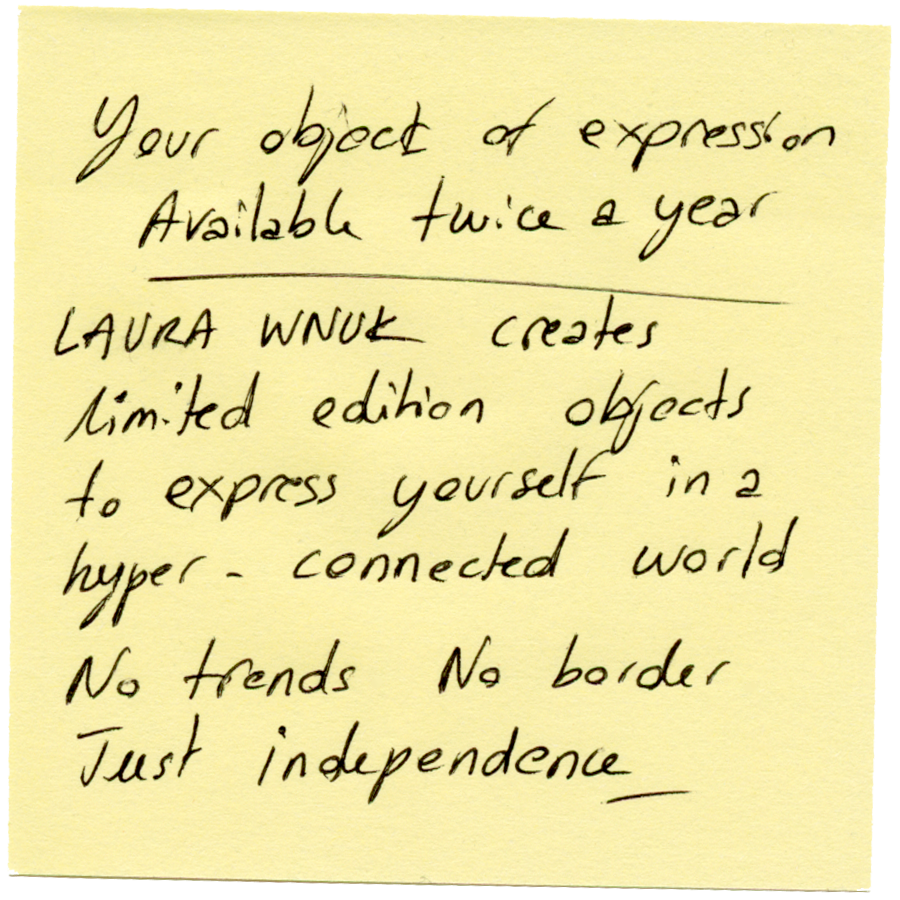 Your object of expression
Available twice a year
LAURA WNUK creates
limited edition objects
to express yourself in a
hyper-connected world
No trends No border
Just independence